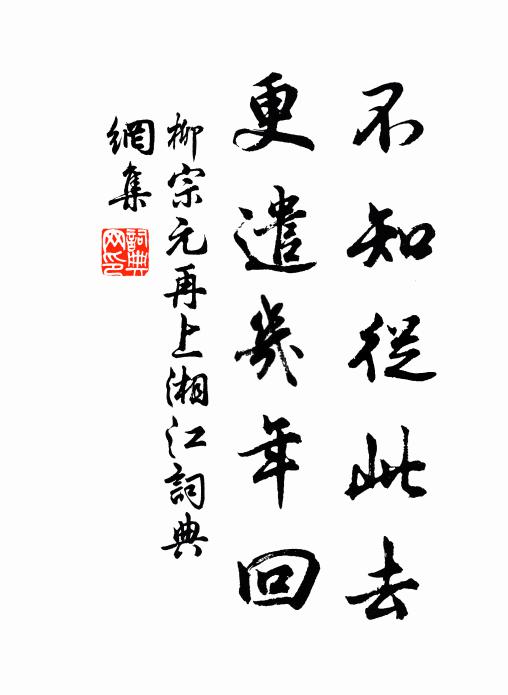 不知從此去
更遣幾年回
柳宗元再上湘江詞典
網集
詞典網印